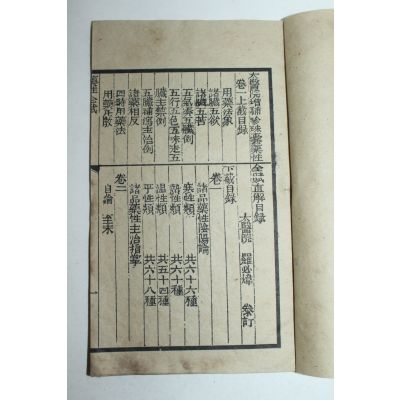 太醫院增補珍珠囊藥性全賦直解目錄
太醫院 羅必煒 參訂
卷一上截目錄
用藥法象
諸臟五欲
諸臟五苦
五氣湊五臟例
五行五色五味走五
臟主禁例
五臟補瀉主治例
諸藥相反
四時用藥法
用藥丸散
下截目錄
卷一
諸品藥性陰陽論
寒性類 共六十六種
熱性類 共六十種
溫性類 共五十四種
平性類 共六十八種
諸品藥性主治指掌
卷二
自論 至末
藥性全賦
一